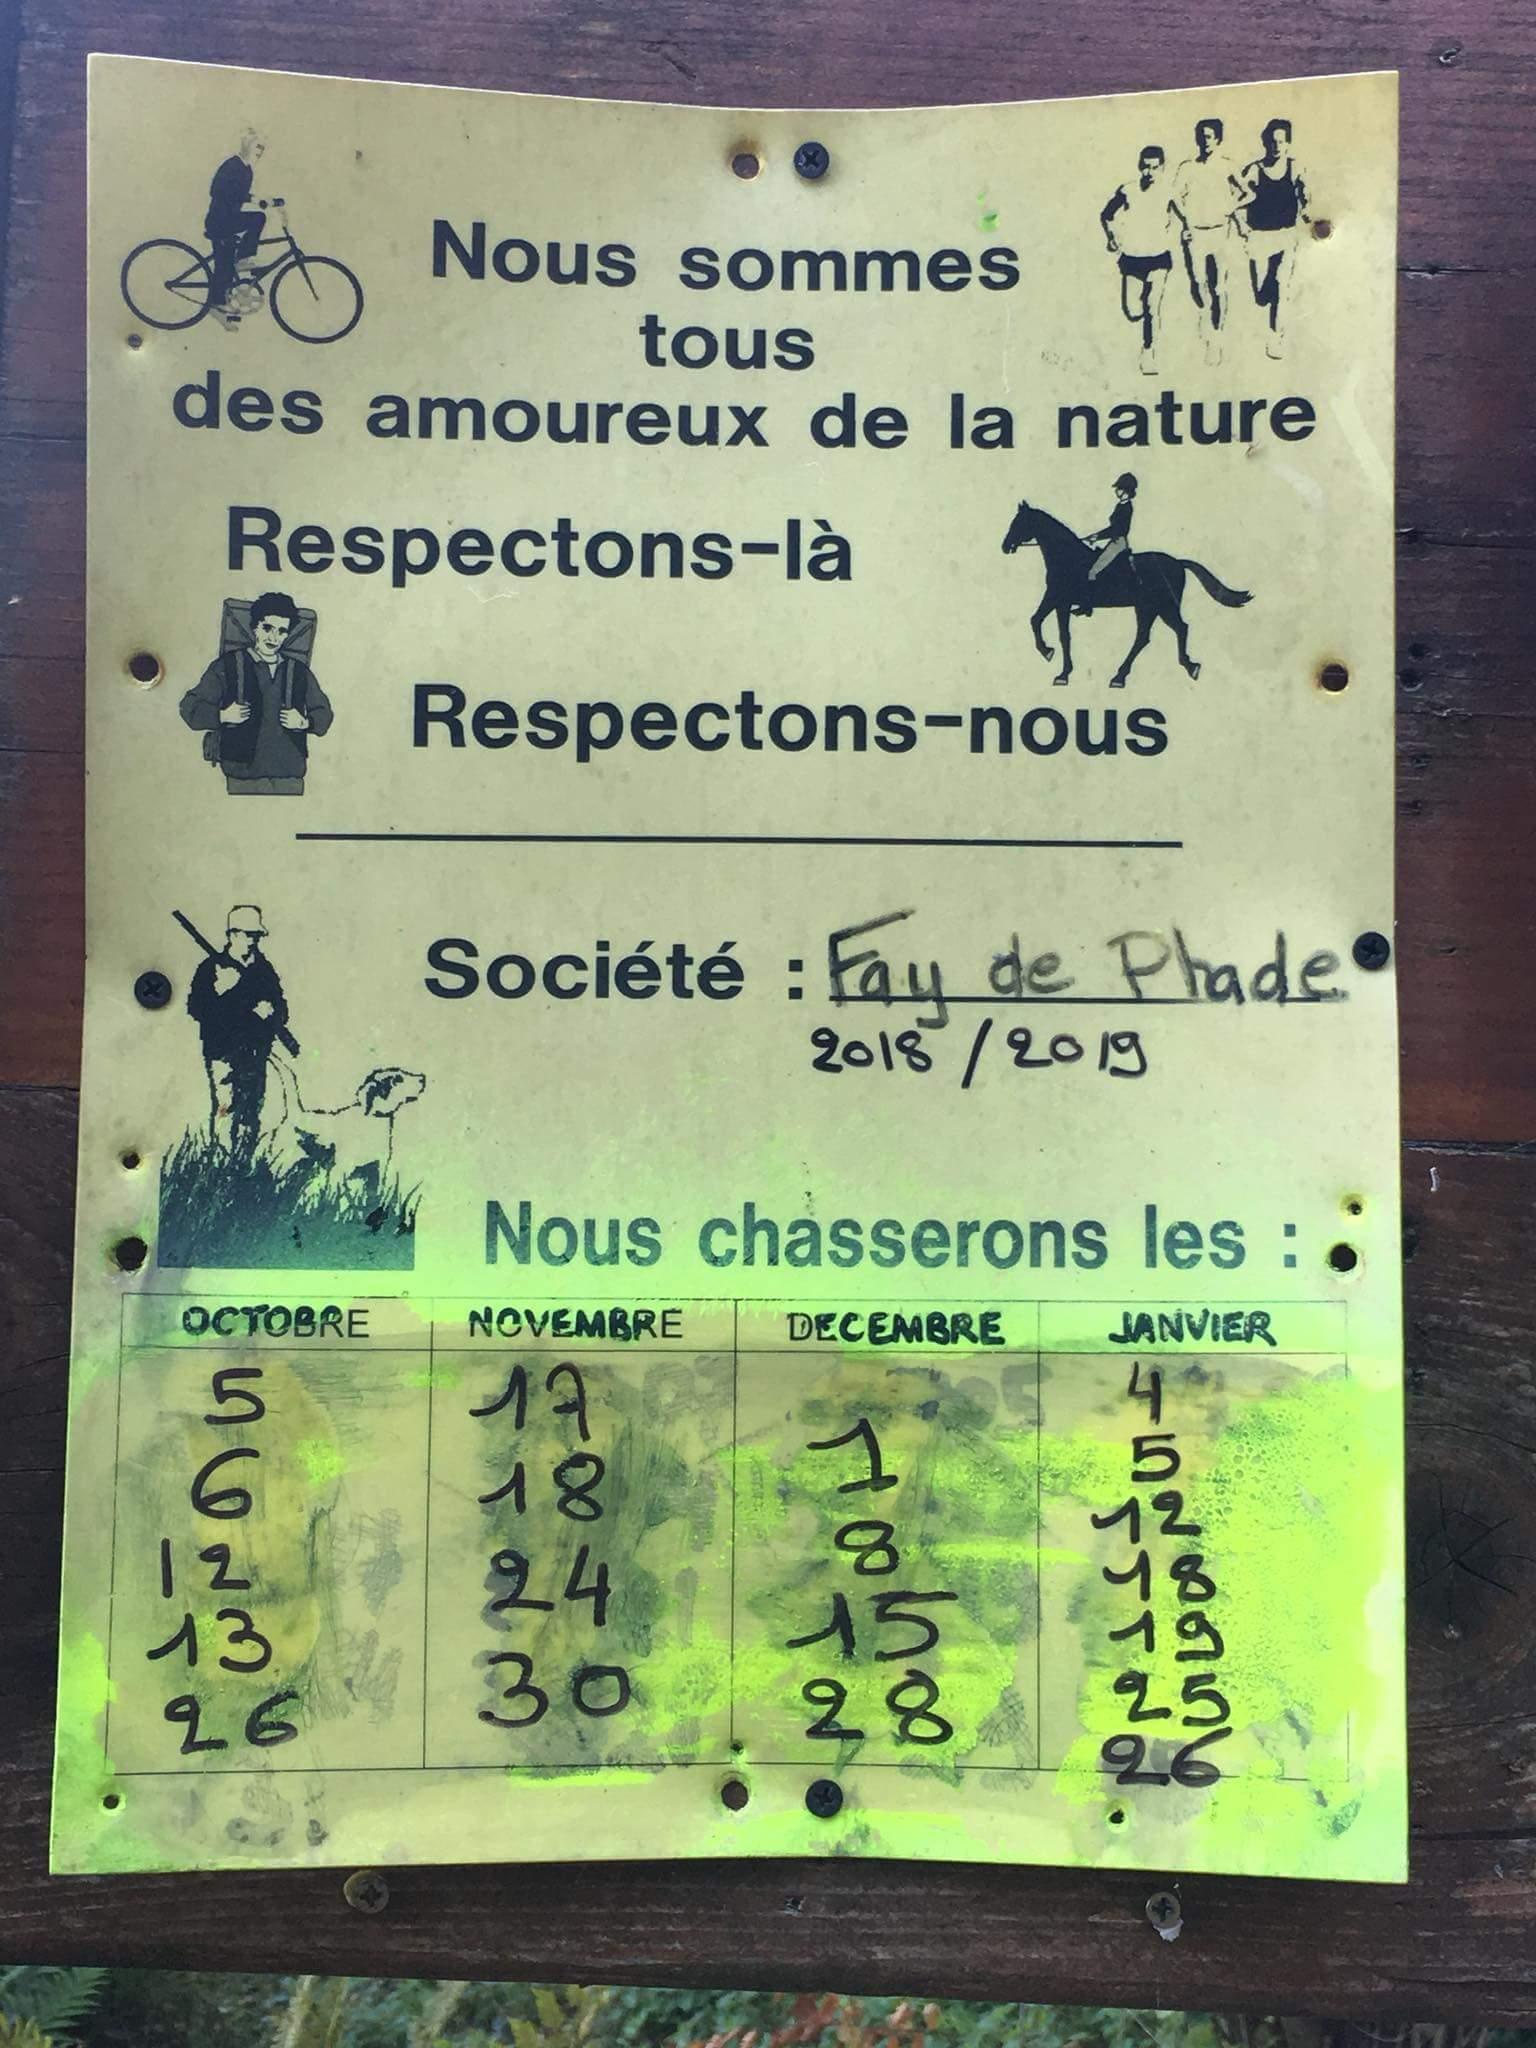 Nous sommes
tous
des amoureux de la nature
Respectons-là
Respectons-nous
Société : Fay de Phade
2018 / 2019
Nous chasserons les :
OCTOBRE NOVEMBRE DECEMBRE JANVIER
5 17 1 4
6 18 8 5
12 24 15 12
13 30 28 18
26 19
25
26